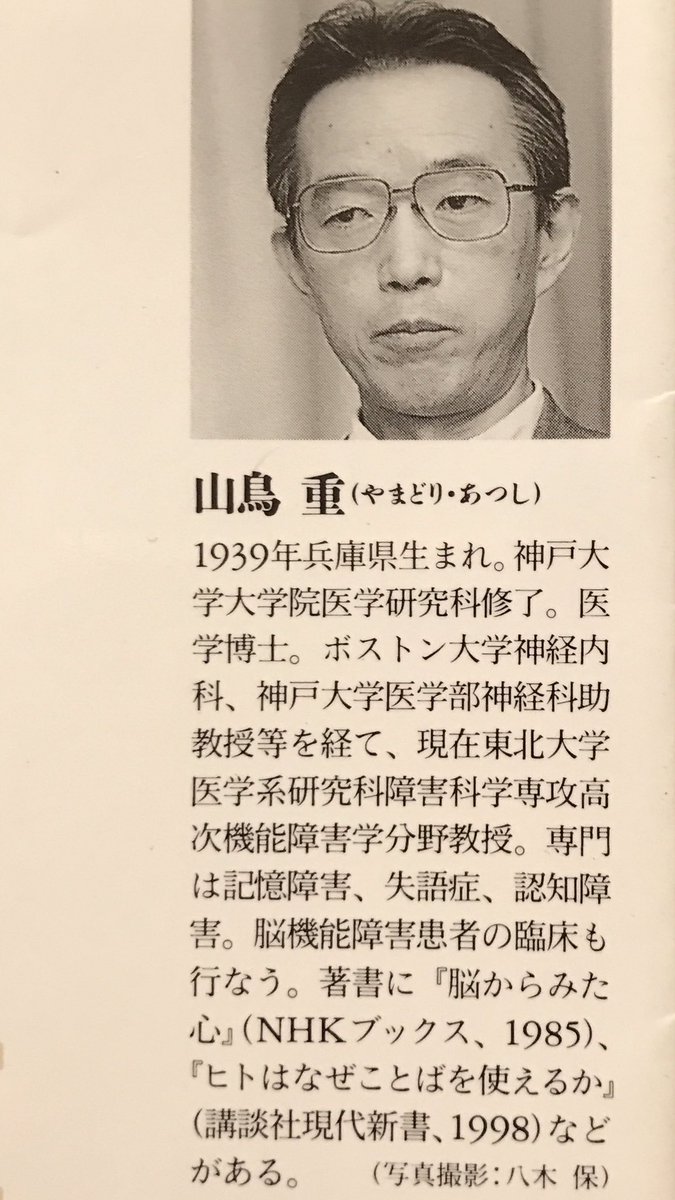 山鳥 重(やまどり・あつし)
1939年兵庫県生まれ。神戸大
学大学院医学研究科修了。医
学博士。ボストン大学神経内
科、神戸大学医学部神経科助
教授等を経て、現在東北大学
医学系研究科障害科学専攻高
次機能障害学分野教授。専門
は記憶障害、失語症、認知障
害。脳機能障害患者の臨床も
行なう。著書に『脳からみた
心』(NHKブックス、1985)、
『ヒトはなぜことばを使えるか』
(講談社現代新書、1998)など
がある。 (写真撮影:八木 保)